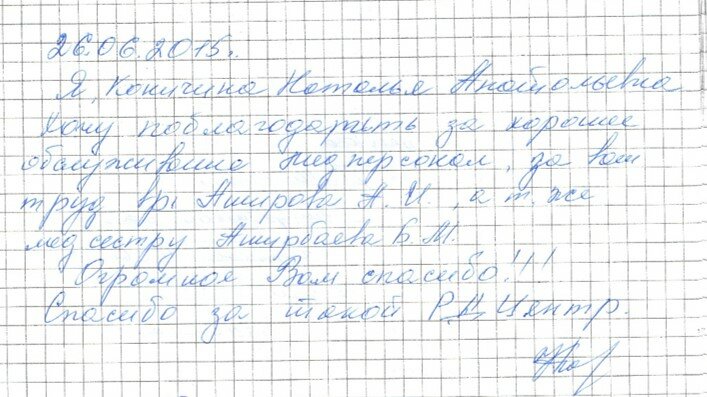 26.06.2015г.
Я, Коничина Наталья Анатольевна
хочу поблагодарить за хорошее
обслуживание медперсонал, за ваш
труд вр. Аширова А. И., а т. же
мед сестру Аширбаева Б. М.
Огромное Вам спасибо!!!
Спасибо за такой РД Центр.